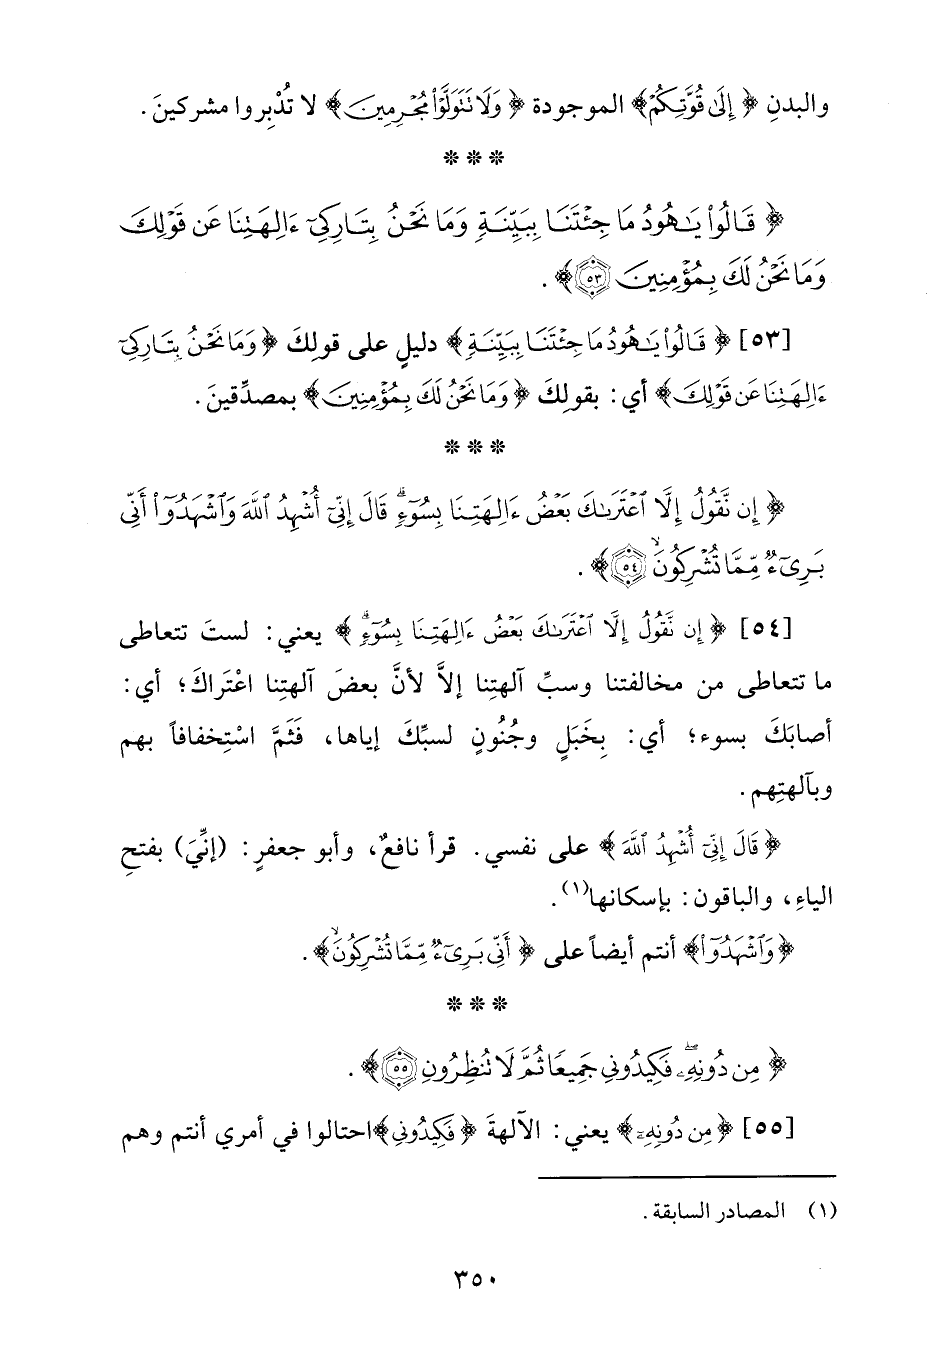 والبدنِ ﴿ إِلَىٰ قُوَّتِكُمْ﴾ الموجودة ﴿ وَلَا تَتَوَلَّوْا۟ مُجْرِمِينَ﴾ لا تُدْبِروا مشركينَ .
* * *
﴿ قَالُوا۟ يَـٰهُودُ مَا جِئْتَنَا بِبَيِّنَةٍ وَمَا نَحْنُ بِتَارِكِىٓ ءَالِهَتِنَا عَن قَوْلِكَ
وَمَا نَحْنُ لَكَ بِمُؤْمِنِينَ ٥٣﴾ .
[٥٣] ﴿ قَالُوا۟ يَـٰهُودُ مَا جِئْتَنَا بِبَيِّنَةٍ﴾ دليلٍ على قولِكَ ﴿وَمَا نَحْنُ بِتَارِكِىٓ
ءَالِهَتِنَا عَن قَوْلِكَ﴾ أي: بقولِكَ ﴿وَمَا نَحْنُ لَكَ بِمُؤْمِنِينَ﴾ بمصدِّقينَ .
* * *
﴿ إِن نَّقُولُ إِلَّا ٱعْتَرَىٰكَ بَعْضُ ءَالِهَتِنَا بِسُوٓءٍ ۗ قَالَ إِنِّىٓ أُشْهِدُ ٱللَّهَ وَٱشْهَدُوٓا۟ أَنِّى
بَرِىٓءٌ مِّمَّا تُشْرِكُونَ ۙ ٥٤﴾ .
[٥٤] ﴿ إِن نَّقُولُ إِلَّا ٱعْتَرَىٰكَ بَعْضُ ءَالِهَتِنَا بِسُوٓءٍ ۗ ﴾ يعني: لستَ تتعاطى
ما تتعاطى من مخالفتنا وسبِّ آلهتِنا إلاَّ لأنَّ بعضَ آلهتِنا اعْتَراكَ؛ أي:
أصابَكَ بسوء؛ أي: بِخَبَلٍ وجُنُونٍ لسبِّكَ إياها، فَثَمَّ اسْتِخفافاً بهم
وبآلهتِهم .
﴿قَالَ إِنِّىٓ أُشْهِدُ ٱللَّهَ ﴾ على نفسي. قرأ نافعٌ، وأبو جعفرٍ: (إنِّيَ) بفتحِ
الياءِ، والباقون: بإسكانها(١) .
﴿وَٱشْهَدُوٓا۟﴾ أنتم أيضاً على ﴿ أَنِّى بَرِىٓءٌ مِّمَّا تُشْرِكُونَ ۙ﴾ .
* * *
﴿ مِن دُونِهِۦ ۖ فَكِيدُونِى جَمِيعًا ثُمَّ لَا تُنظِرُونِ ٥٥﴾ .
[٥٥] ﴿مِن دُونِهِۦ﴾ يعني: الآلهةَ ﴿فَكِيدُونِى﴾احتالوا في أمري أنتم وهم
(١) المصادر السابقة .
٣٥٠